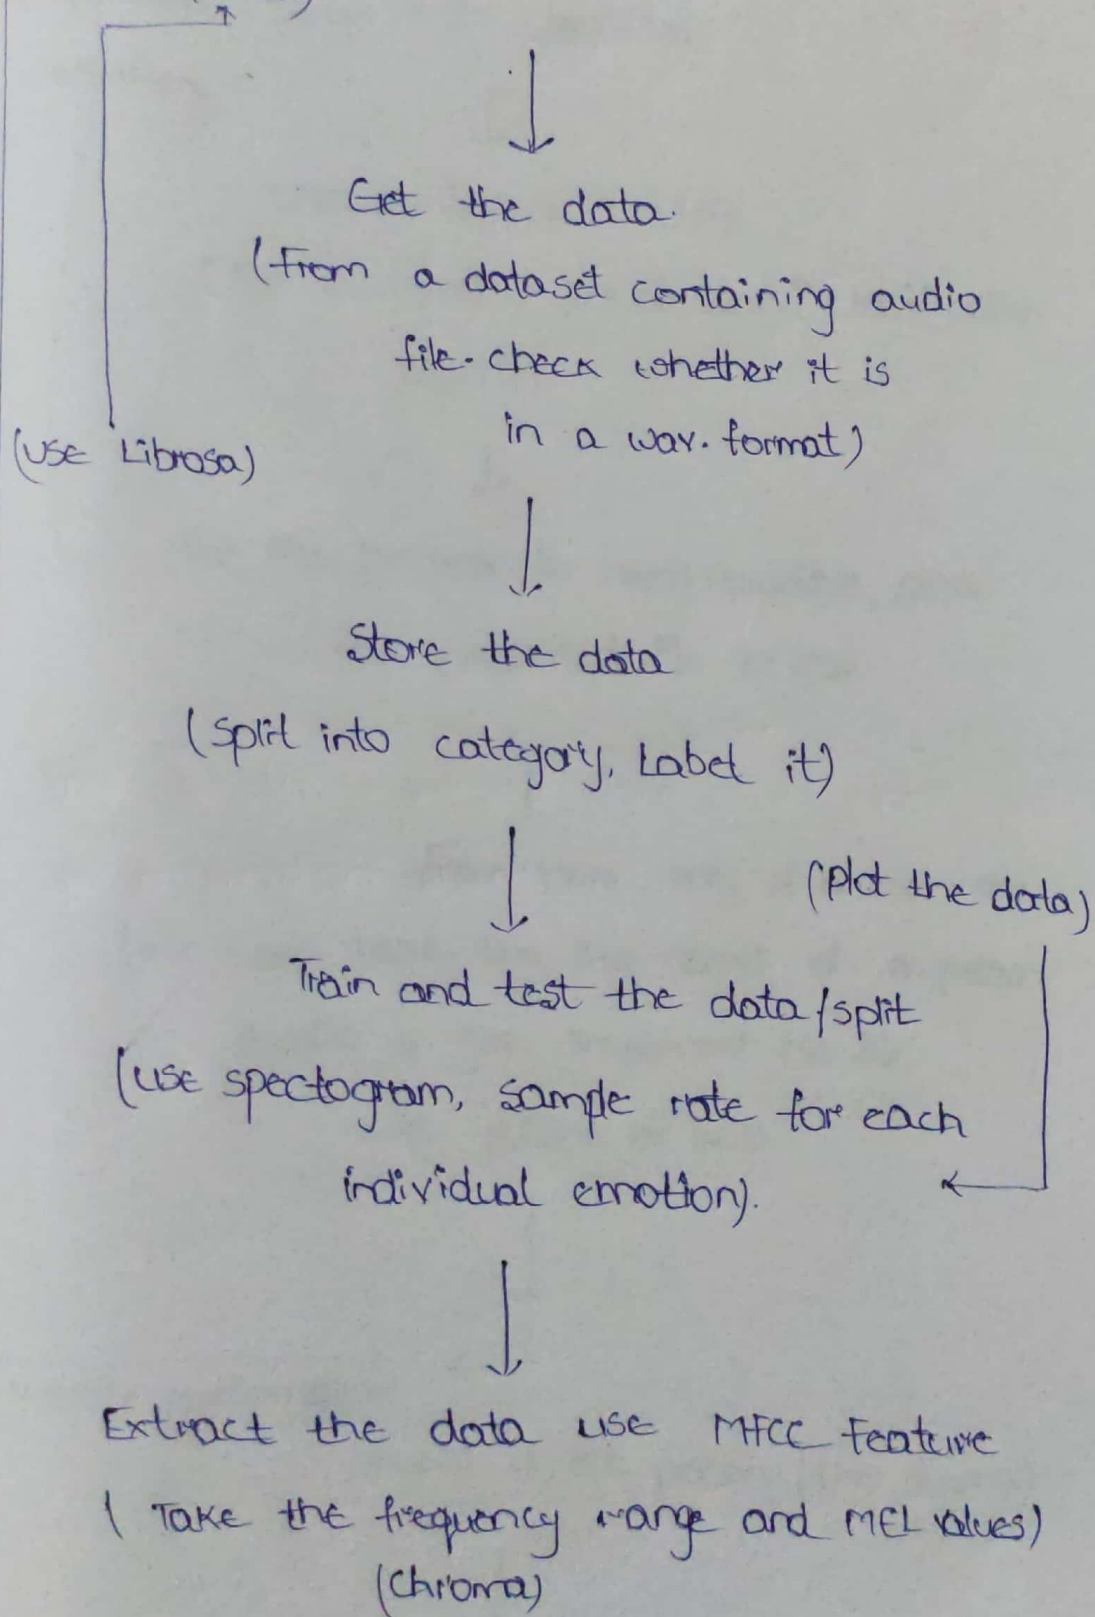 Get the data.
(From a dataset containing audio
file. check whether it is
in a wav. format)
(Use Librosa)
Store the data
(split into category, Label it)
(plot the data)
Train and test the data/split
(use spectogram, sample rate for each
individual emotion).
Extract the data use MFCC feature
( Take the frequency range and MEL values)
(Chroma)